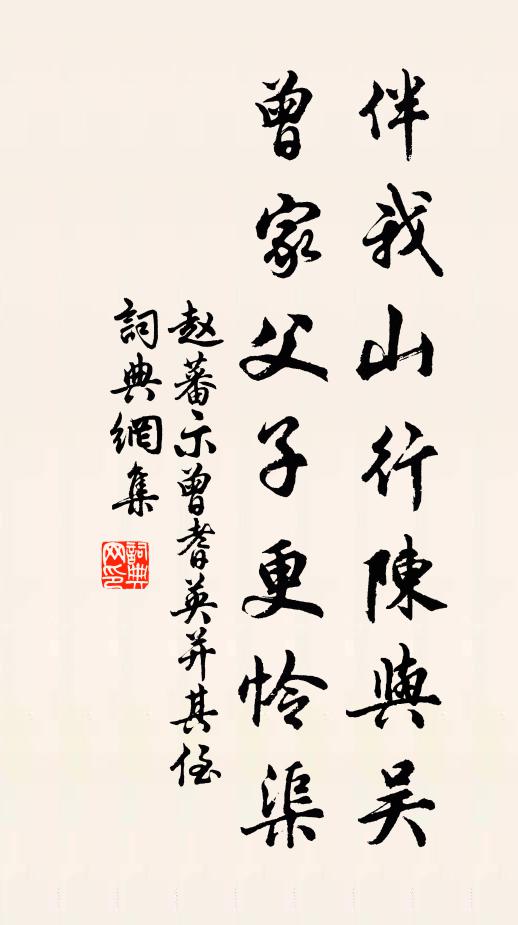 伴我山行陳與吴
曾家父子更怜渠
赵蕃示曾耆英并其侄
詞典網集
詞典网印